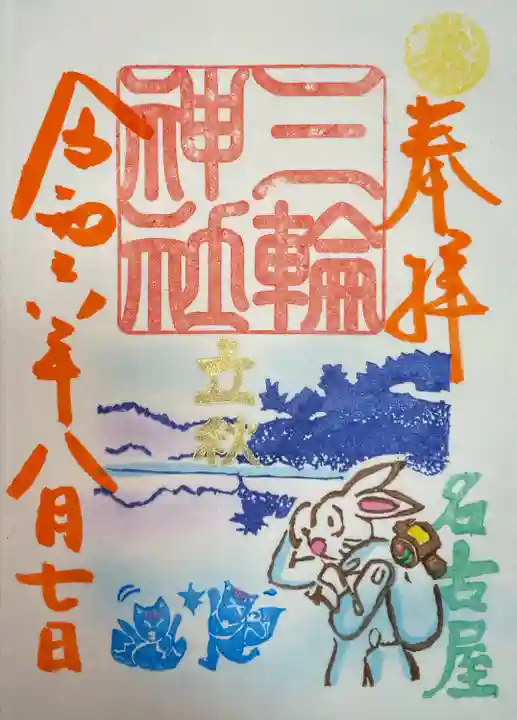 奉拝
三輪
神社
立秋
名古屋
令和六年八月七日